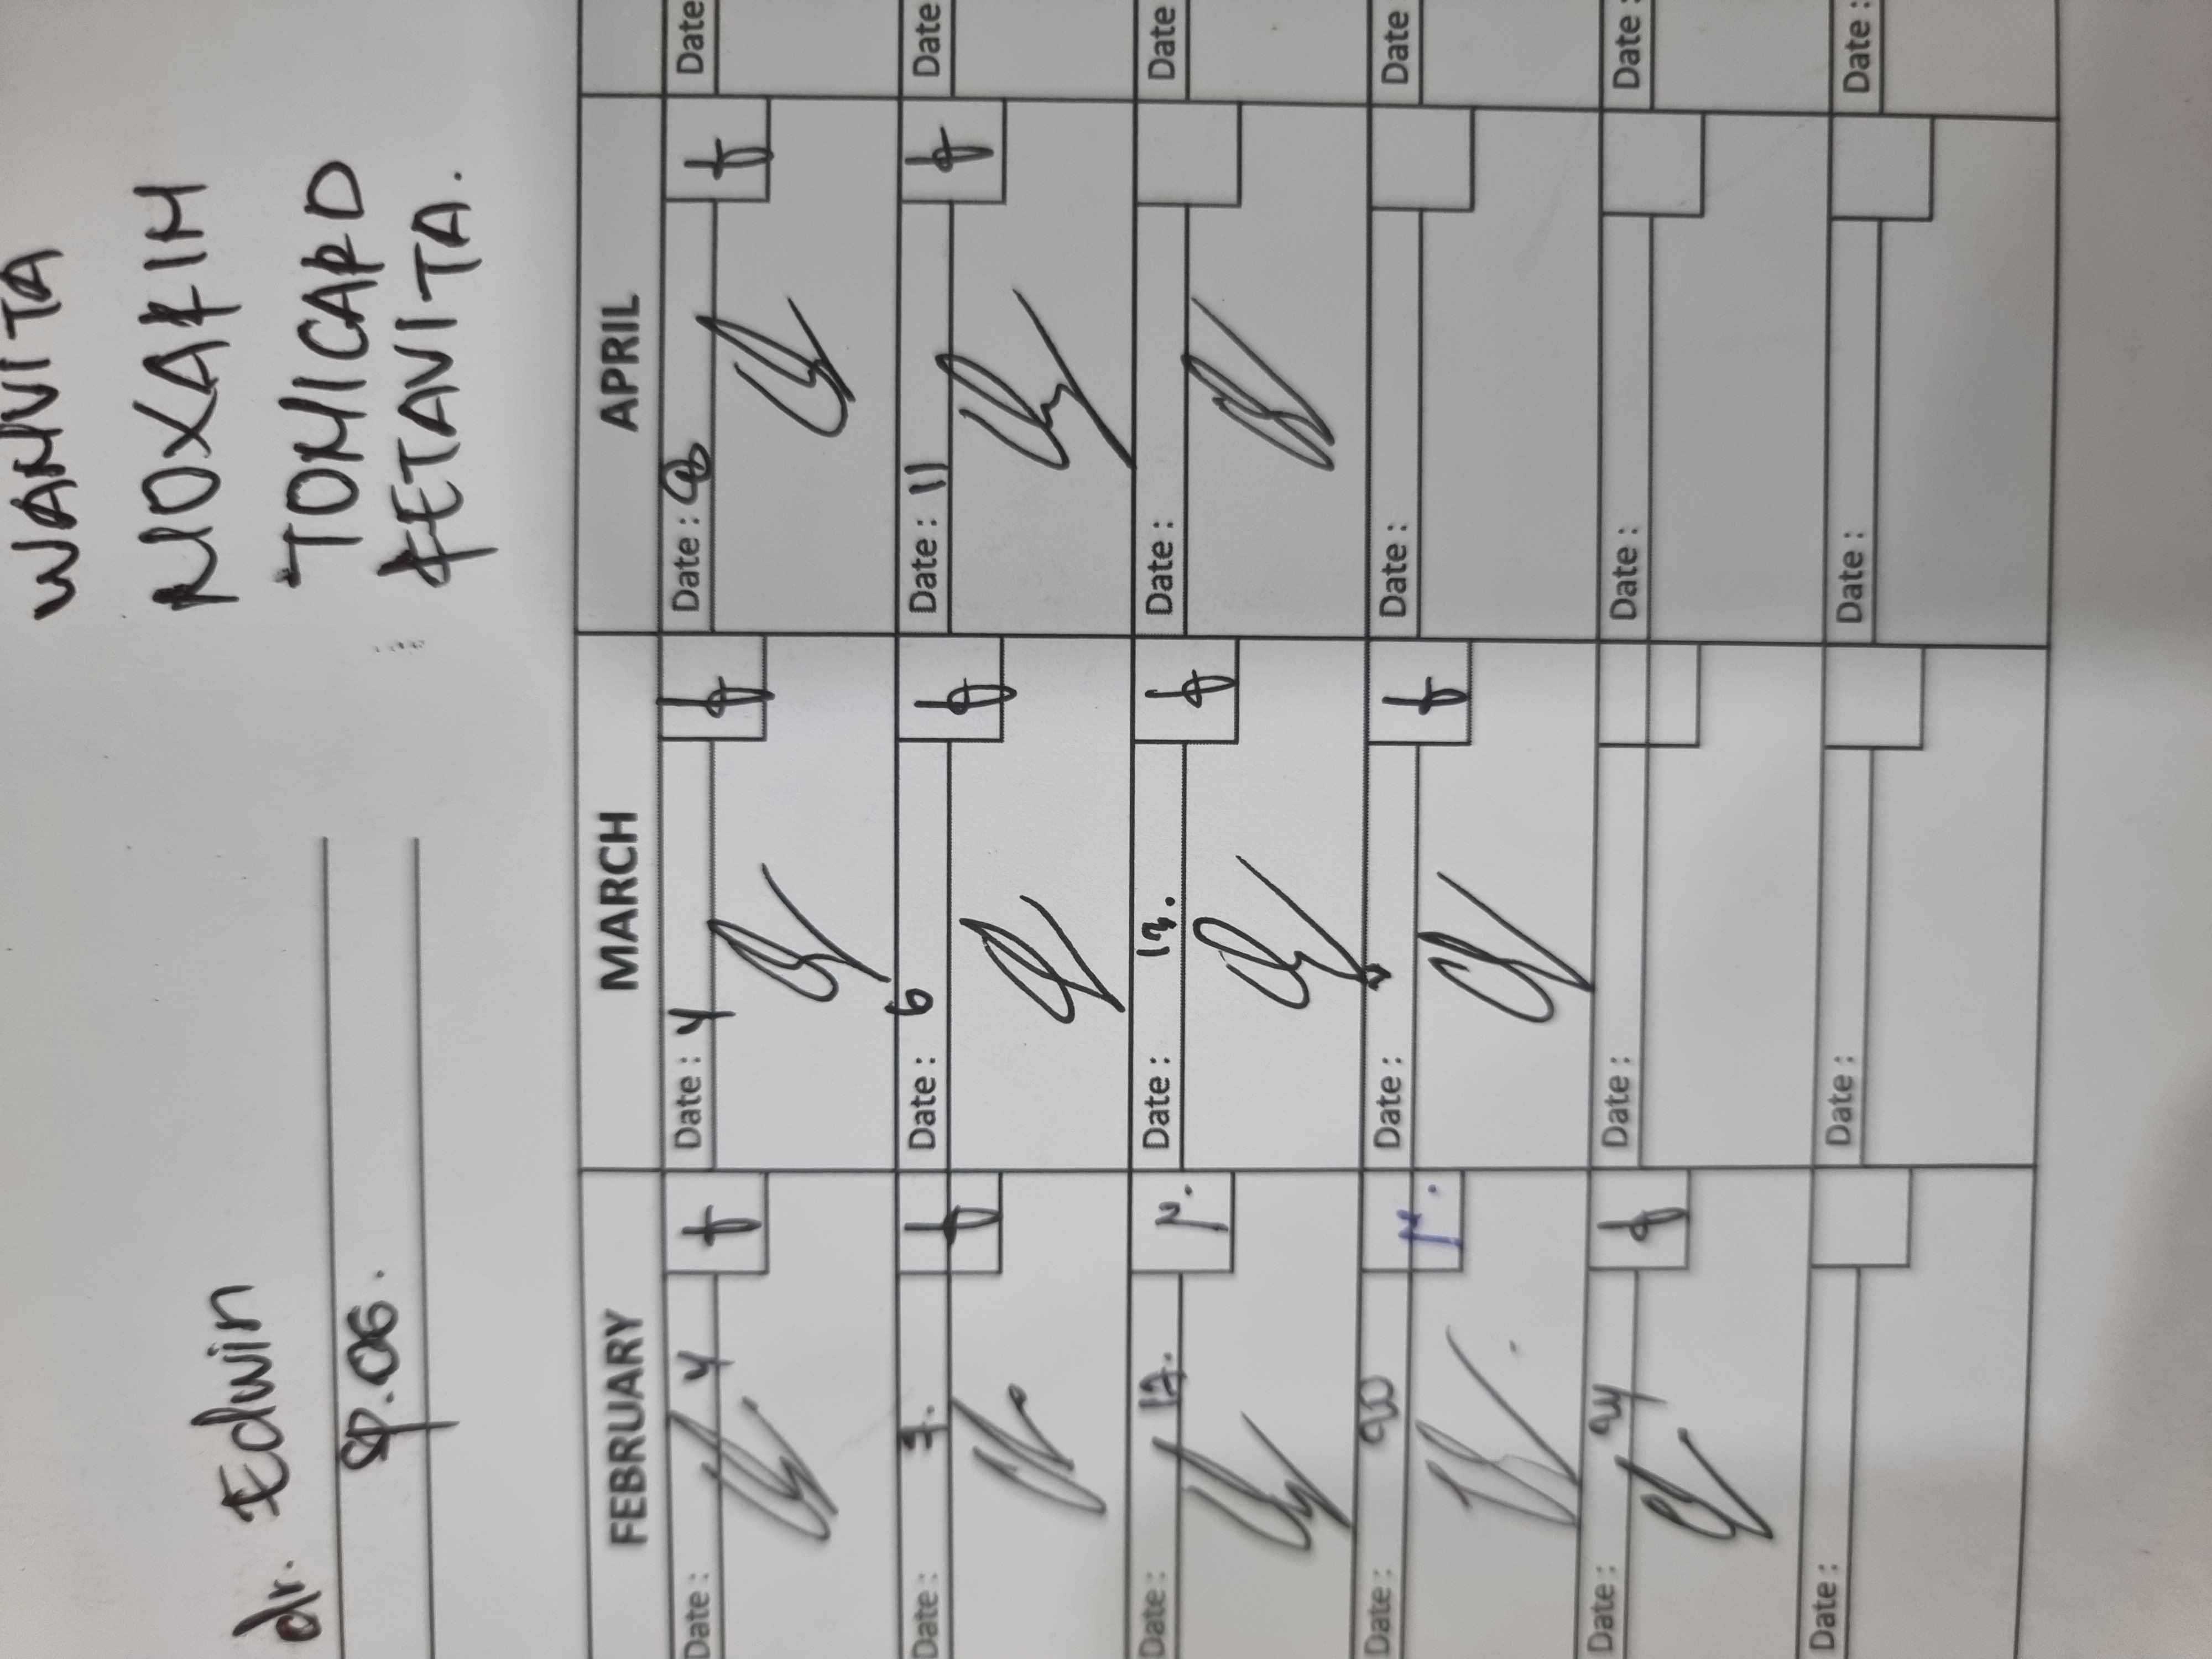 WANVITA
NOXAFIM
TOMICARD
FETAVITA.
dr. Edwin
SP.OG.
FEBRUARY MARCH APRIL
Date: 4 Date: 4 Date: Date
Date: 7. Date: 6 Date: 11 Date
Date: 12. Date: 13. Date: Date
Date: 20 Date: Date: Date
Date: 24 Date: Date: Date:
Date: Date: Date: Date: